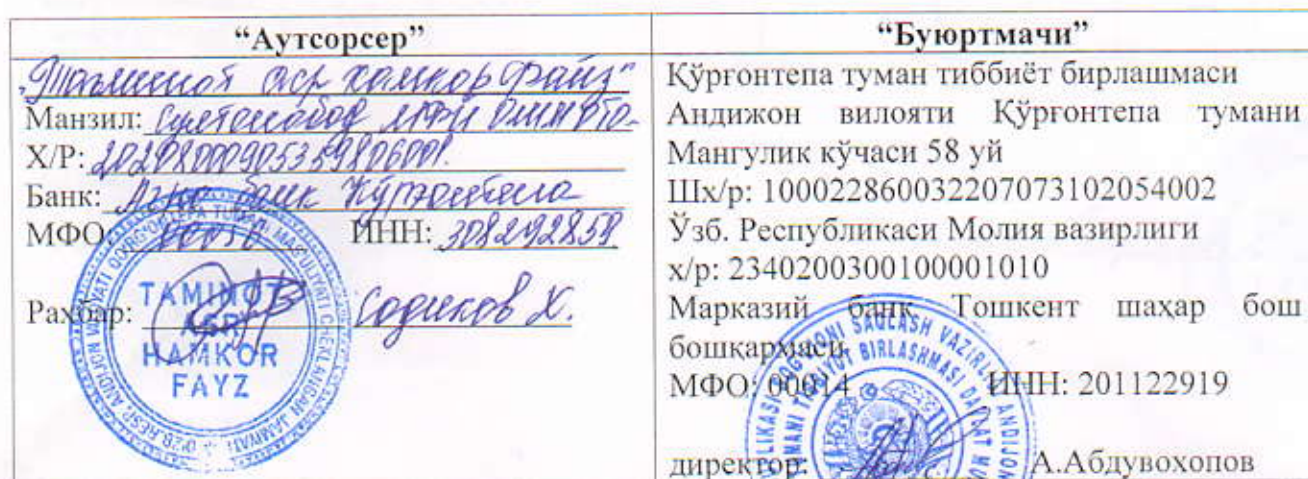 “Аутсорсер”
"Таъминот аср хамкор файз"
Манзил: Султонобод МФЙ
Х/Р: 20208000905359806001.
Банк: Агро банк Қўрғонтепа
МФО: ИНН: 308292859
Рахбар: Содиков Х.
TAMINOT
ASR
HAMKOR
FAYZ
“Буюртмачи”
Қўрғонтепа туман тиббиёт бирлашмаси
Андижон вилояти Қўрғонтепа тумани
Мангулик кўчаси 58 уй
Шх/р: 100022860032207073102054002
Ўзб. Республикаси Молия вазирлиги
х/р: 23402000300100001010
Марказий банк Тошкент шаҳар бош
бошқармаси
МФО: 00014 ИНН: 201122919
директор: А.Абдувохопов